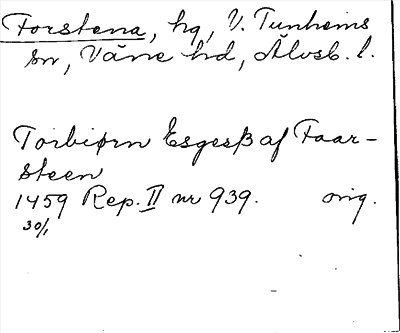 Forstena, hg, V. Tunhems
sn, Väne hd, Älvsb. l.
Torbiørn Esgesß af Faar-
steen
1459 Rep. II nr 939. orig.
30/1